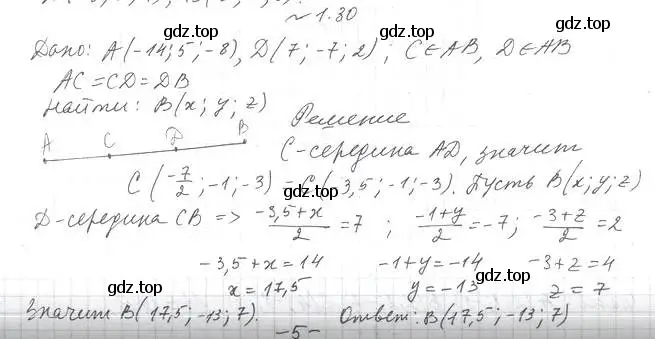 gdz.top
№ 1.30
Дано: A(-14; 5; -8), D(7; -7; 2); C∈AB, D∈AB
AC = CD = DB
Найти: B(x; y; z)
Решение
gdz.top gdz.top
A C D B
C-середина AD, значит
C(-7/2; -1; -3) = C(-3,5; -1; -3). Пусть B(x; y; z)
D-середина CB => (-3,5+x)/2 = 7; (-1+y)/2 = -7; (-3+z)/2 = 2
-3,5+x = 14 -1+y = -14 -3+z = 4
x = 17,5 y = -13 z = 7
gdz.top gdz.top
Значит B(17,5; -13; 7). Ответ: B(17,5; -13; 7)
-5-
gdz.top